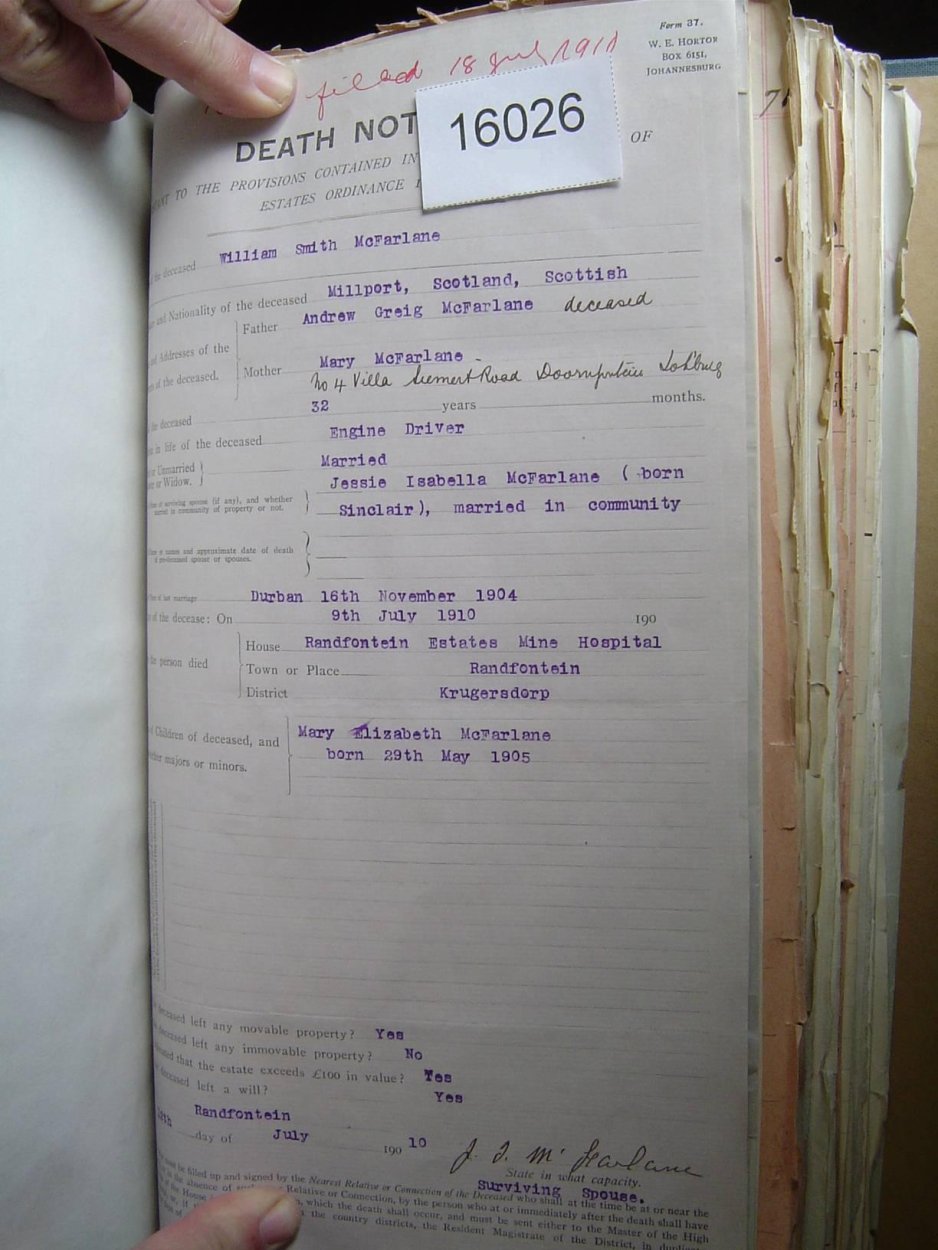 Form 37.
W. E. HORTOR
BOX 6151,
JOHANNESBURG.
filed 18 July
16026
DEATH NOT
OF
TO THE PROVISIONS CONTAINED IN
ESTATES ORDINANCE
deceased William Smith McFarlane
and Nationality of the deceased Millport, Scotland, Scottish
Father Andrew Greig McFarlane deceased
Addresses of the
of the deceased.
Mother Mary McFarlane
No 4 Villa Road
deceased 32 years months.
in life of the deceased Engine Driver
or Unmarried
or Widow.
Married
of surviving spouse (if any), and whether
married in community of property or not.
Jessie Isabella McFarlane ( born
Sinclair), married in community
names and approximate date of death
of predeceased spouse or spouses.
of last marriage Durban 16th November 1904
of the decease: On 9th July 1910 190
person died
House Randfontein Estates Mine Hospital
Town or Place Randfontein
District Krugersdorp
Children of deceased, and
majors or minors.
Mary Elizabeth McFarlane
born 29th May 1905
deceased left any movable property? Yes
deceased left any immovable property? No
that the estate exceeds £100 in value? Yes
deceased left a will? Yes
Randfontein
day of July 190 10
J. I. McFarlane
State in what capacity.
Surviving Spouse.
be filled up and signed by the Nearest Relative or Connection of the Deceased who shall at the time be at or near the
absence of Relative or Connection, by the person who at or immediately after the death shall have
of the House which the death shall occur, and must be sent either to the Master of the High
the country districts, the Resident Magistrate of the District, in